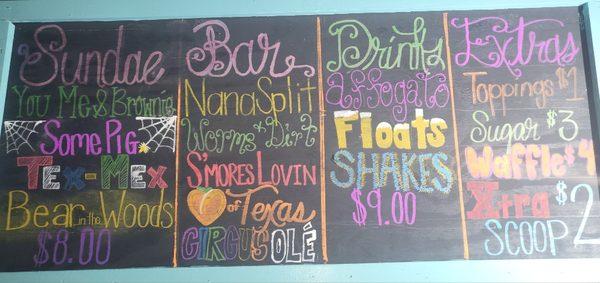 Sundae
You Me & Brownie
Some Pig
Tex-Mex
Bear in the Woods
$8.00
Bar
Nana Split
Worms & Dirt
S'mores Lovin
of Texas
Circus Olé
Drinks
affogato
Floats
SHAKES
$9.00
Extras
Toppings $1
Sugar $3
Waffle $4
Xtra $2
SCOOP